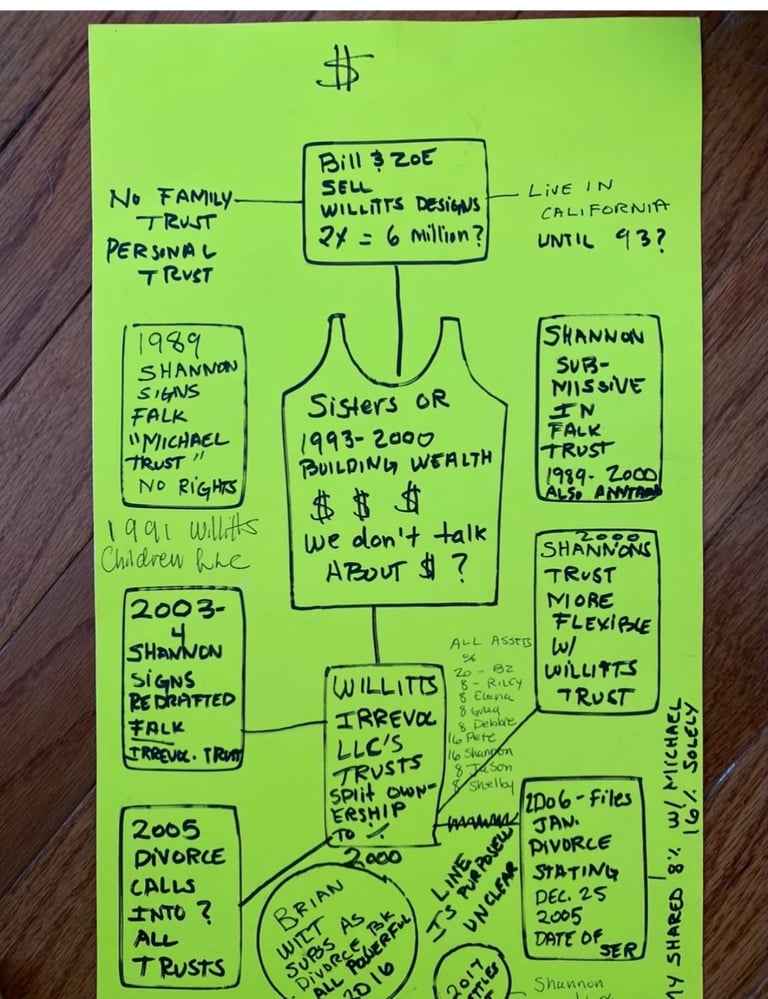 $
Bill & ZOE
SELL
WILLITTS DESIGNS
2X = 6 million?
NO FAMILY
TRUST
PERSONAL
TRUST
LIVE IN
CALIFORNIA
UNTIL 93?
1989
SHANNON
SIGNS
FALK
"MICHAEL
TRUST"
NO RIGHTS
Sisters OR
1993-2000
BUILDING WEALTH
$ $ $
We don't talk
ABOUT $ ?
SHANNON
SUB-
MISSIVE
IN
FALK
TRUST
1989-2000
ALSO
1991 Willitts
Children LLC
2000
SHANNONS
TRUST
MORE
FLEXIBLE
W/
WILLITTS
TRUST
2003-
4
SHANNON
SIGNS
REDRAFTED
FALK
IRREVOL. TRUST
WILLITTS
IRREVOL
LLC'S
TRUSTS
SPLIT OWN-
ERSHIP
TO %
2000
ALL ASSETS
%
20 - BZ
8 - RILEY
8 Elena
8 Greg
8 Debbie
16 Pete
16 Shannon
8 Jason
8 Shelby
2005
DIVORCE
CALLS
INTO ?
ALL
TRUSTS
LINE
IS PURPOSELY
UNCLEAR
2006 - Files
JAN.
DIVORCE
STATING
DEC. 25
2005
DATE OF
SER
MY SHARED 8% W/ MICHAEL
16% SOLELY
BRIAN
WILT
SUBS AS
DIVORCE
ALL POWERFUL
2016
2017
Shannon